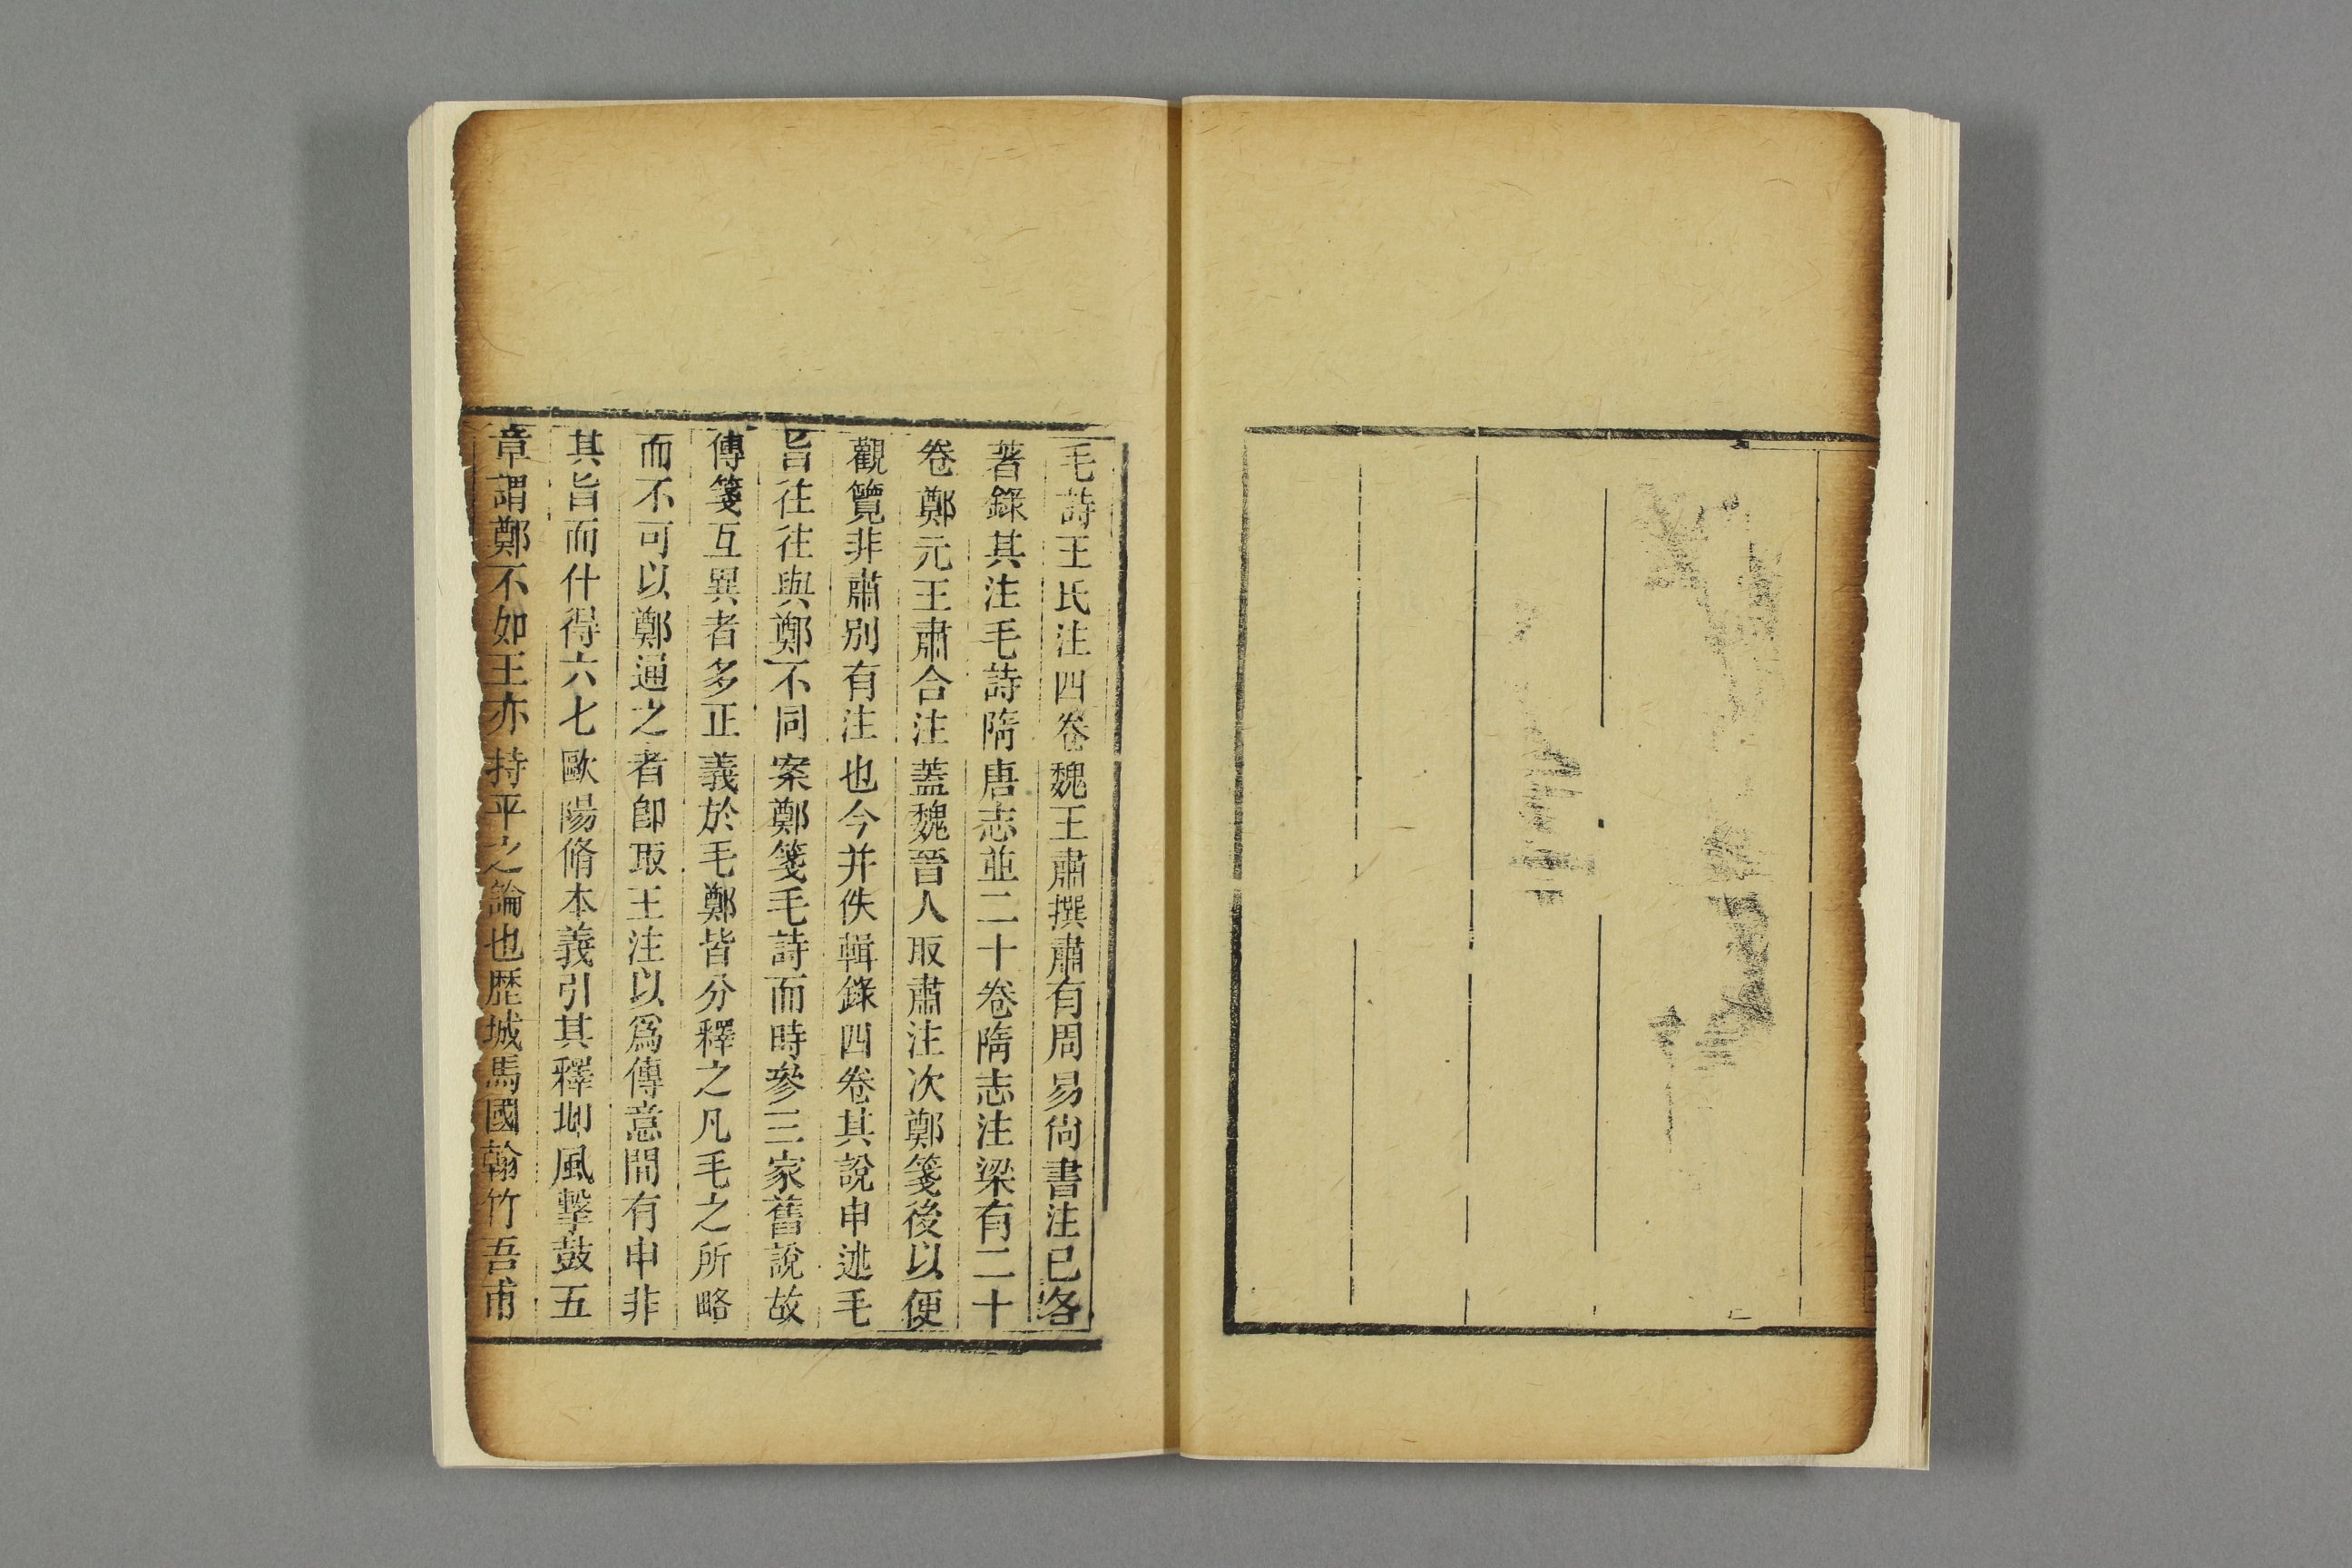 毛詩王氏注四卷魏王肅撰肅有周易尚書注已各
著錄其注毛詩隋唐志並二十卷隋志注梁有二十
卷鄭元王肅合注蓋魏晉人取肅注次鄭箋後以便
觀覽非肅別有注也今并佚輯錄四卷其說申述毛
旨往往與鄭不同案鄭箋毛詩而時參三家舊說故
傳箋互異者多正義於毛鄭皆分釋之凡毛之所略
而不可以鄭通之者卽取王注以爲傳意閒有申非
其旨而什得六七歐陽脩本義引其釋邶風擊鼓五
章謂鄭不如王亦持平之論也歷城馬國翰竹吾甫